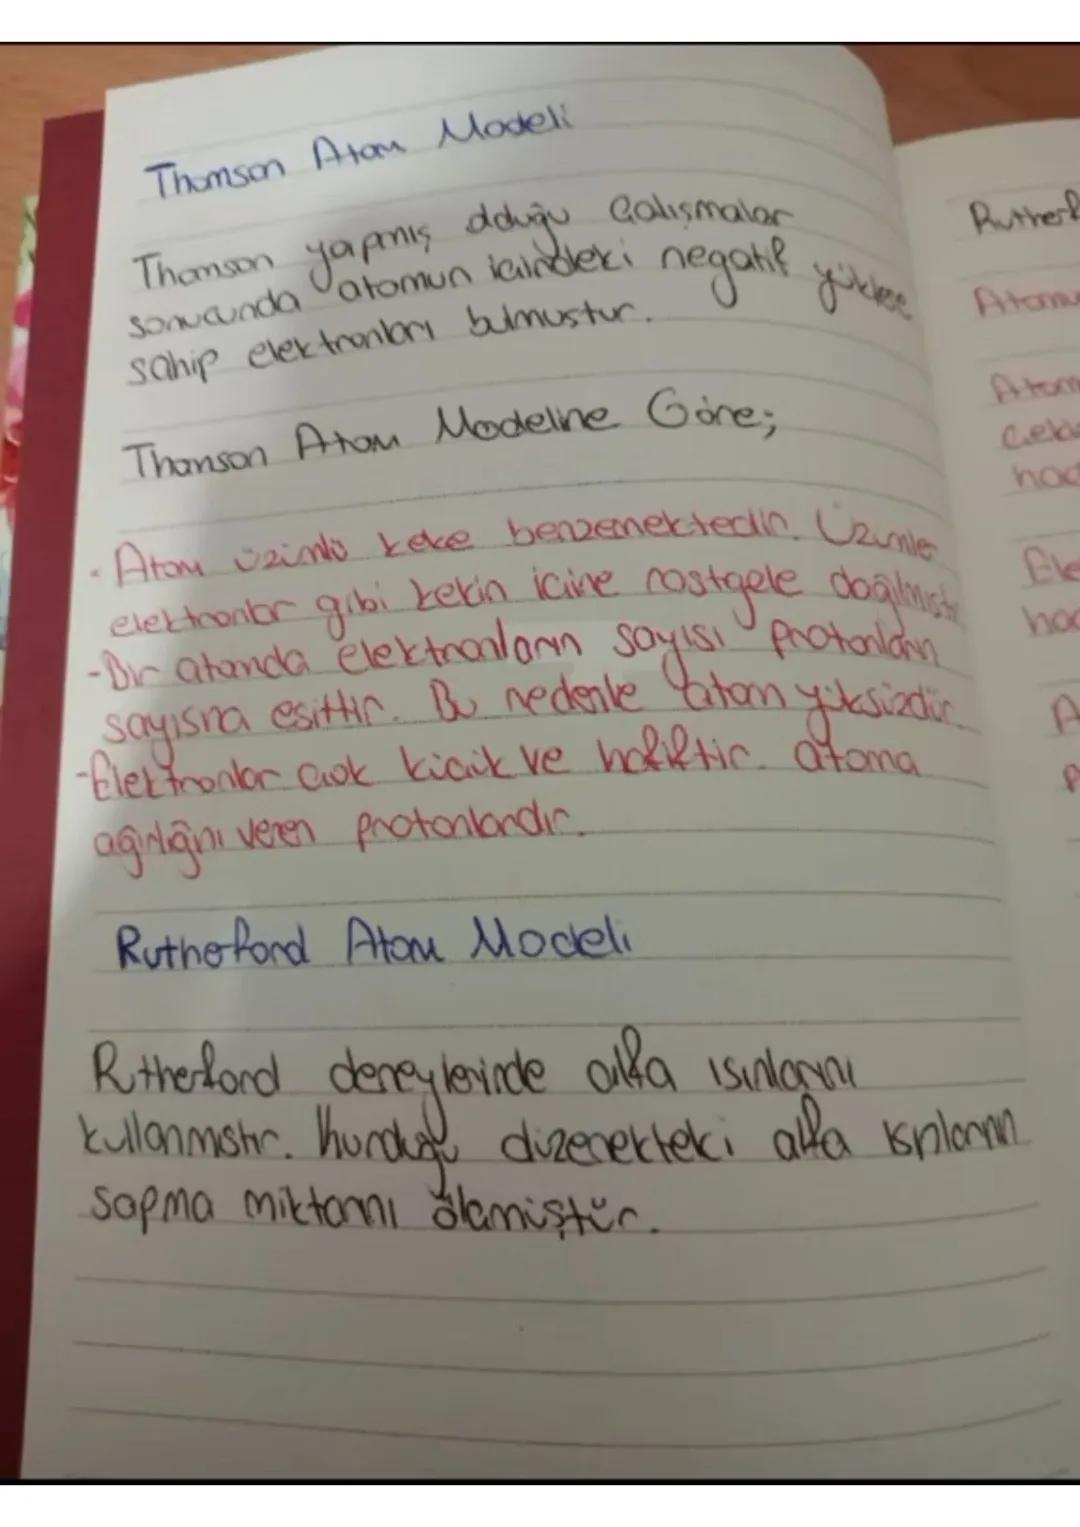 Thomson Atom Modeli
Thomson yapmış olduğu çalışmalar
sonucunda atomun içindeki negatif yüklere
sahip elektronları bulmustur.
Thomson Atom Modeline Göre;
- Atom üzümlü keke benzemektedir. Üzümler
elektronlar gibi kekin içine rastgele dağılmıştır
- Bir atomda elektronların sayısı protonların
sayısına esittir. Bu nedenle atom yüksüzdür.
- Elektronlar çok küçük ve hafiftir. atoma
ağırlığını veren protonlardır.
Rutherford Atom Modeli
Rtherford deneylerinde alfa ısınlarını
kullanmıstır. Kurduğu düzenekteki alfa ısınlarının
sapma miktarını ölçmüştür.
Rutherf
Atomu
Atom
çeki
hac
Ele
hac
A
P